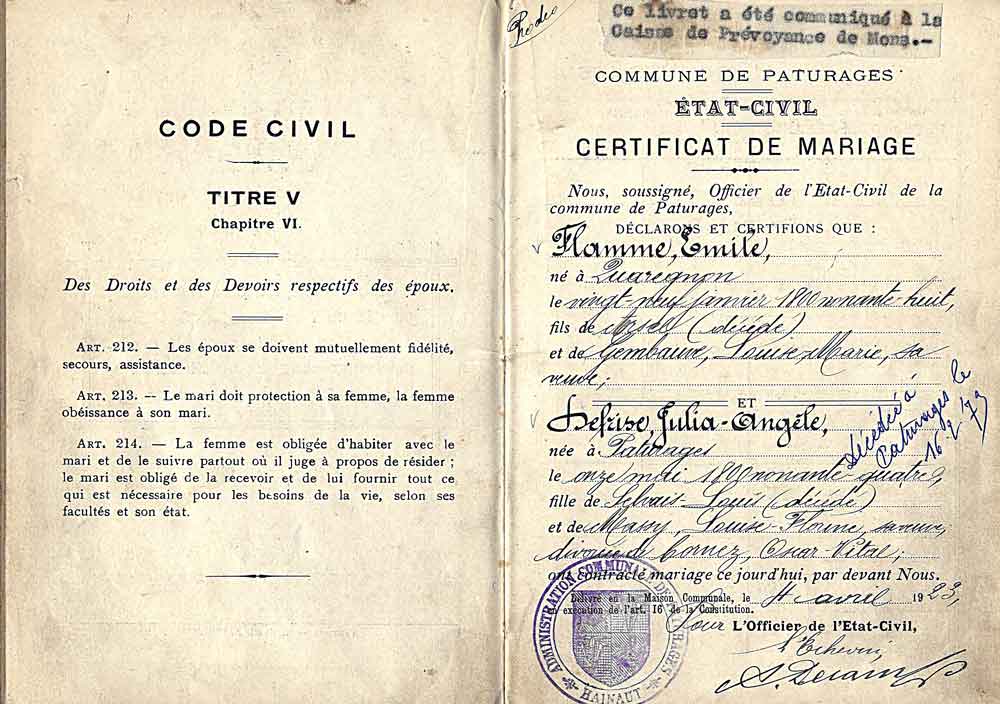 CODE CIVIL
TITRE V
Chapitre VI.
Des Droits et des Devoirs respectifs des époux.
ART. 212. — Les époux se doivent mutuellement fidélité,
secours, assistance.
ART. 213. — Le mari doit protection à sa femme, la femme
obéissance à son mari.
ART. 214. — La femme est obligée d'habiter avec le
mari et de le suivre partout où il juge à propos de résider ;
le mari est obligé de la recevoir et de lui fournir tout ce
qui est nécessaire pour les besoins de la vie, selon ses
facultés et son état.
Ce livret a été communiqué à la
Caisse de Prévoyance de Mons.-
COMMUNE DE PATURAGES
ÉTAT-CIVIL
CERTIFICAT DE MARIAGE
Nous, soussigné, Officier de l'Etat-Civil de la
commune de Paturages,
DÉCLARONS ET CERTIFIONS QUE :
Flamme, Emile,
né à Quaregnon
le vingt neuf janvier 1800 nonante-huit,
fils de (décédé)
et de Gembauve, Louise-Marie, sa
veuve;
ET
Defrise, Julia-Angèle,
née à Paturages
le onze mai 1800 nonante-quatre,
fille de Louis (décédé)
et de Massy, Louise-Florine, sa veuve,
divorcée de Cornez, Oscar-Vital;
ont contracté mariage ce jourd'hui, par devant Nous.
Délivré en la Maison Communale, le 4 avril 1923,
en exécution de l'art. 16 de la Constitution.
Pour L'Officier de l'Etat-Civil,
l'Echevin,
Décédé à
Paturages le
16/2/73
ADMINISTRATION COMMUNALE DE PATURAGES
HAINAUT